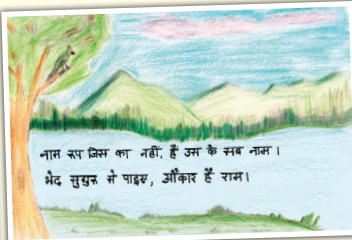 नाम रूप जिस का नहीं, हैं उस के सब नाम।
भेद सुगुरु से पाइए, ओंकार हैं राम।